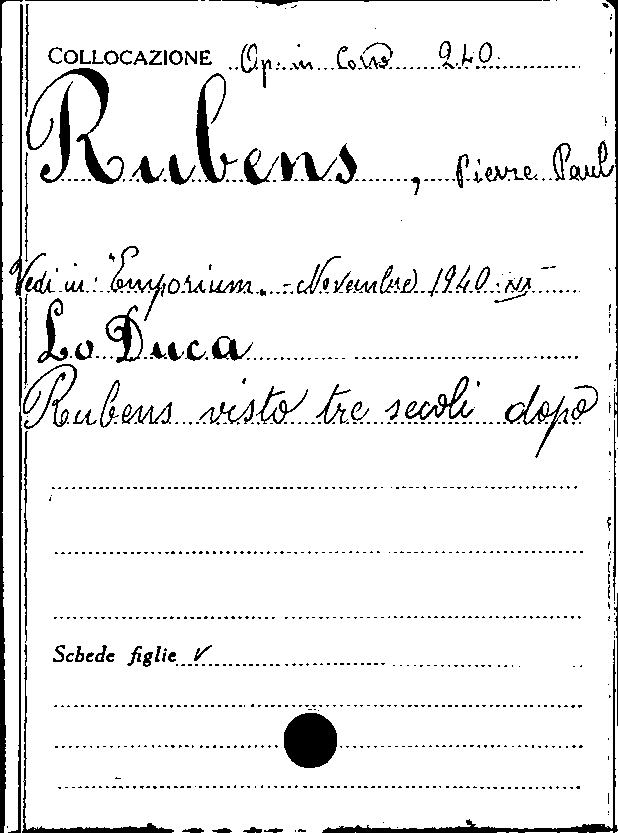 COLLOCAZIONE Op. in Corso 240
Rubens, Pierre Paul
Vedi in: "Emporium" - Novembre 1940
Lo Duca
Rubens visto tre secoli dopo
Schede figlie V